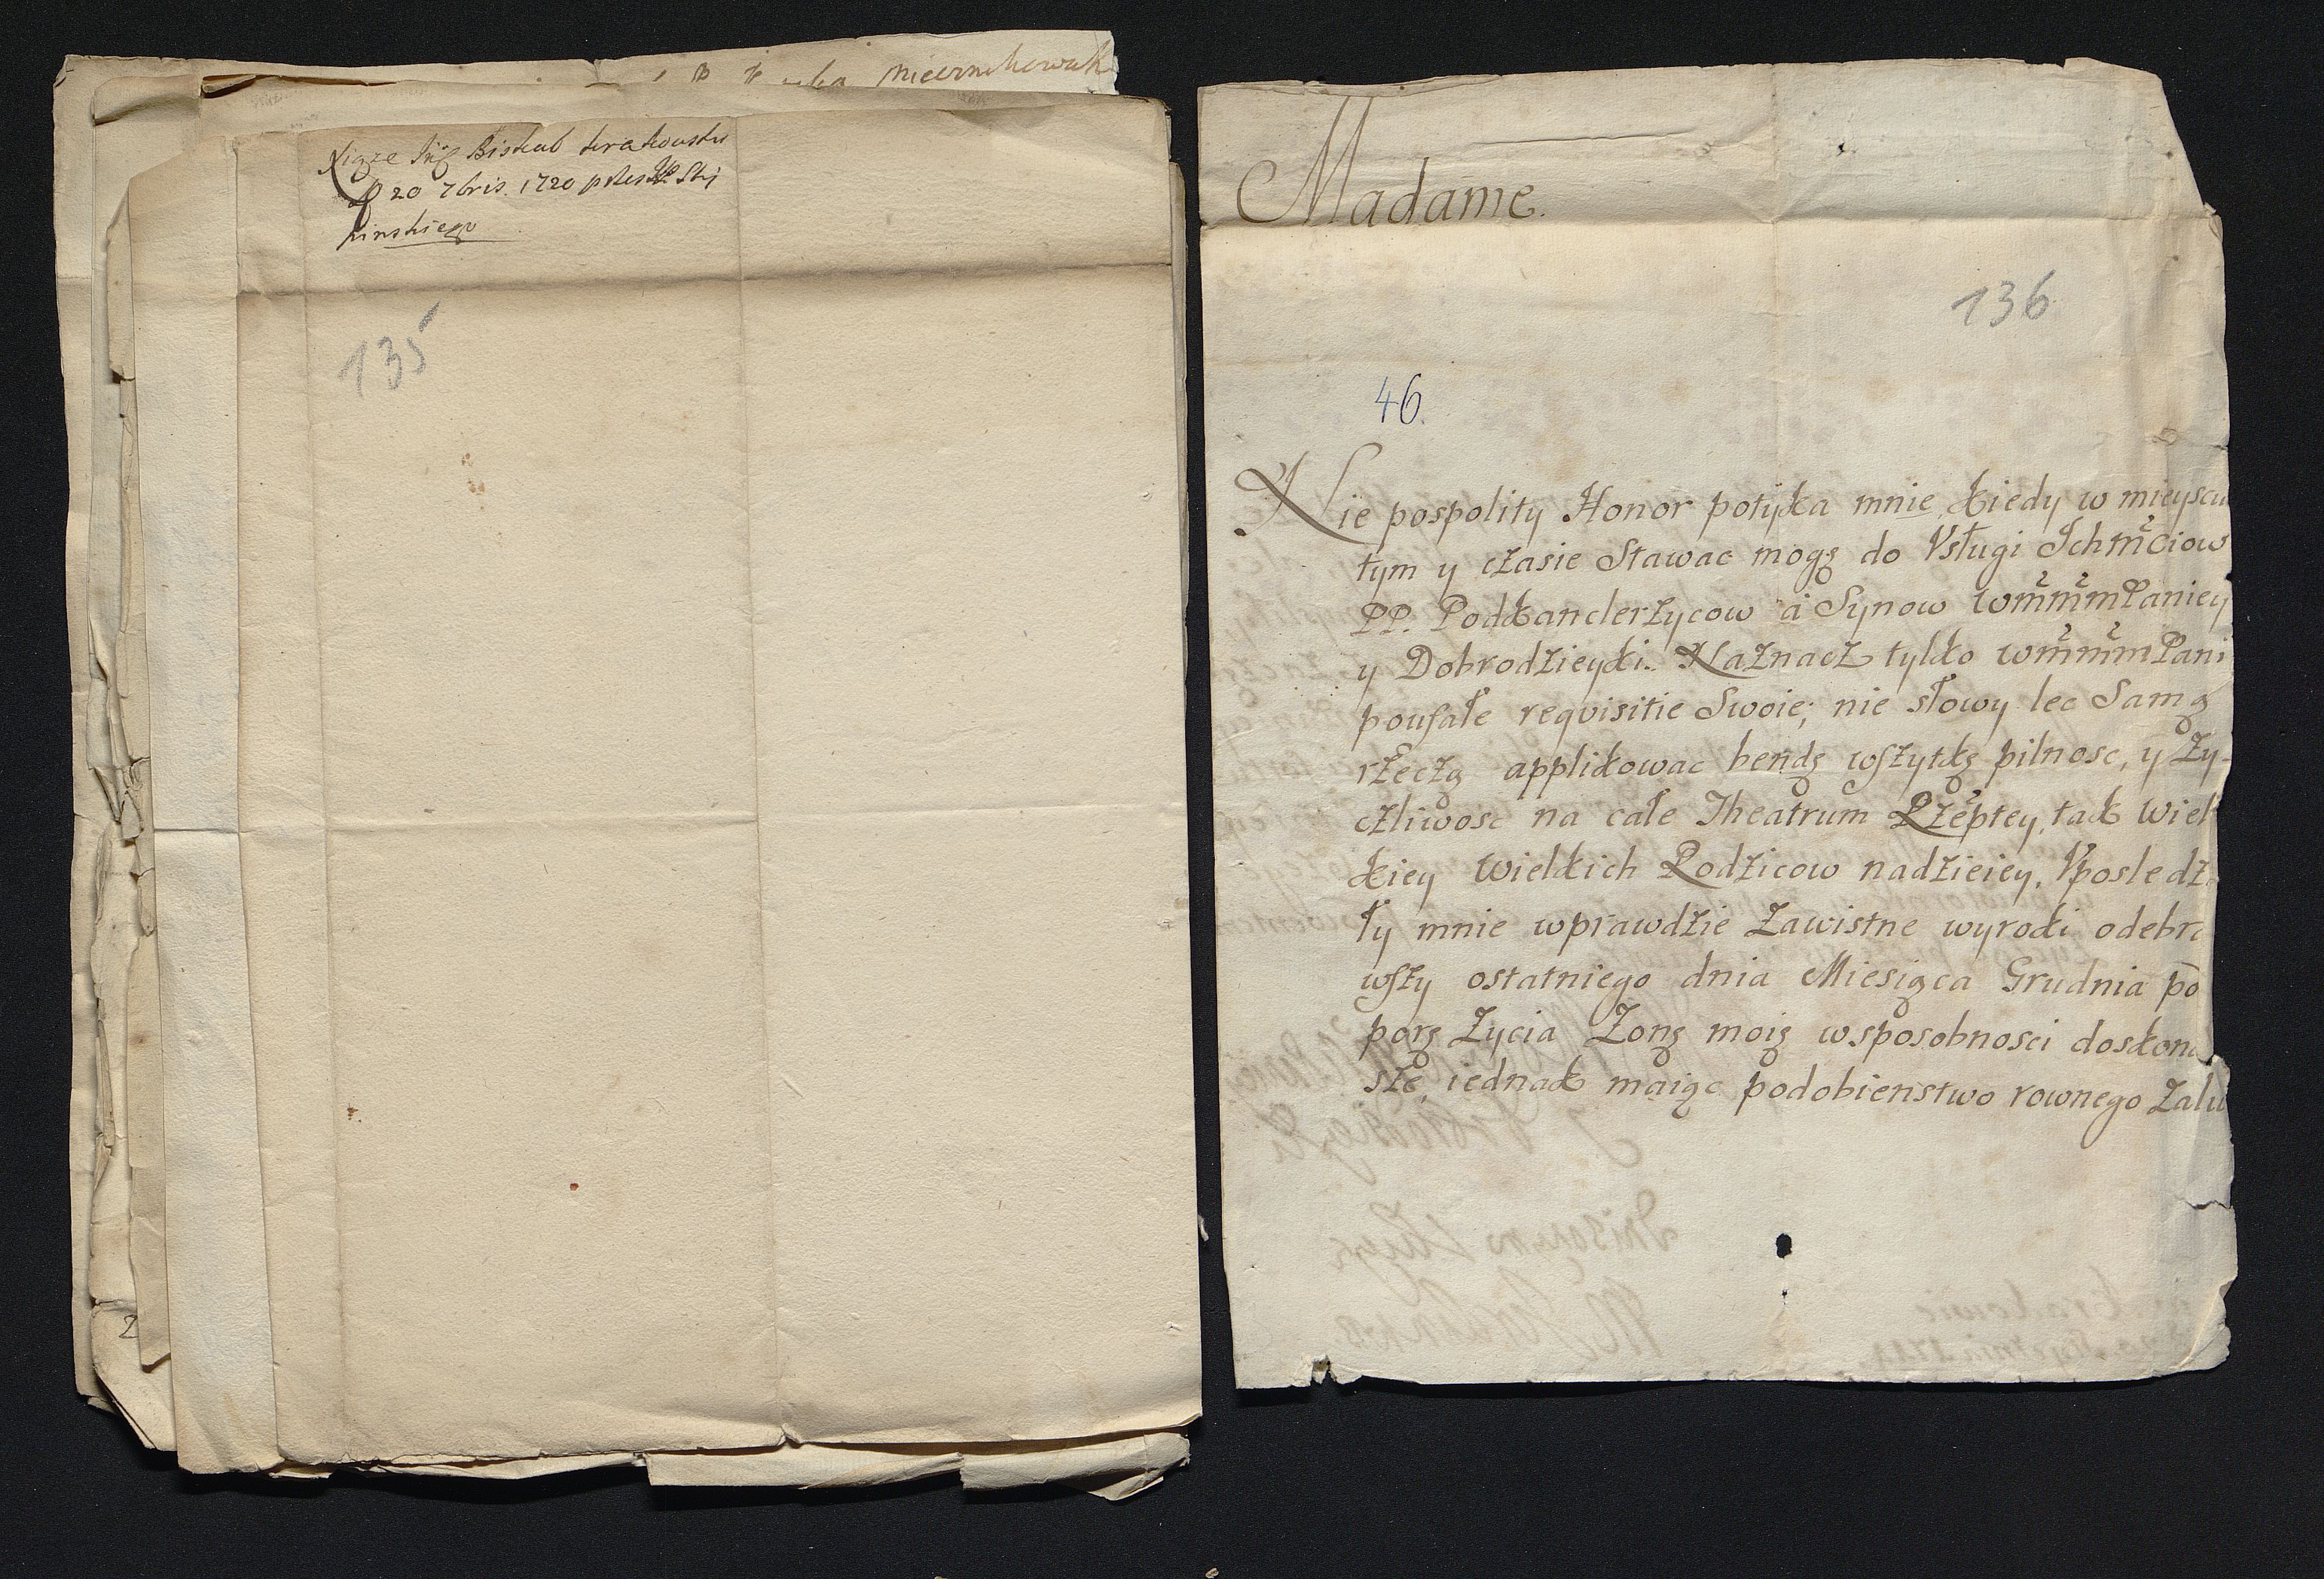 Xiąze Jmć Biskub krakowski
D 20 7bris. 1720 przes JP Skj
kinskiego
135
Madame.
136
46.
Nie pospolity Honor potyka mnie, kiedy w mieyscu
tym y czasie Stawac mogę do Vsługi Jchmciow
PP. Podkanclerzycow a Synow WmmmPaniey
y Dobrodzieyki. Naznacz tylko WmmmPani
poufałe reqvisitie Swoie; nie słowy lec Samą
rzeczą applikowac bendę wszytkę pilnosc, y zy-
czliwosc na całe Theatrum Rzeptey, tak wiel
kiey Wielkich Rodzicow nadzieiey. Vposledza
ły mnie wprawdzie zawistne wyroki odebra
wszy ostatniego dnia Miesiąca Grudnia po
porę Zycia Zonę moię w sposobnosci doskona
sze, iednak maiąc podobienstwo rownego zalu